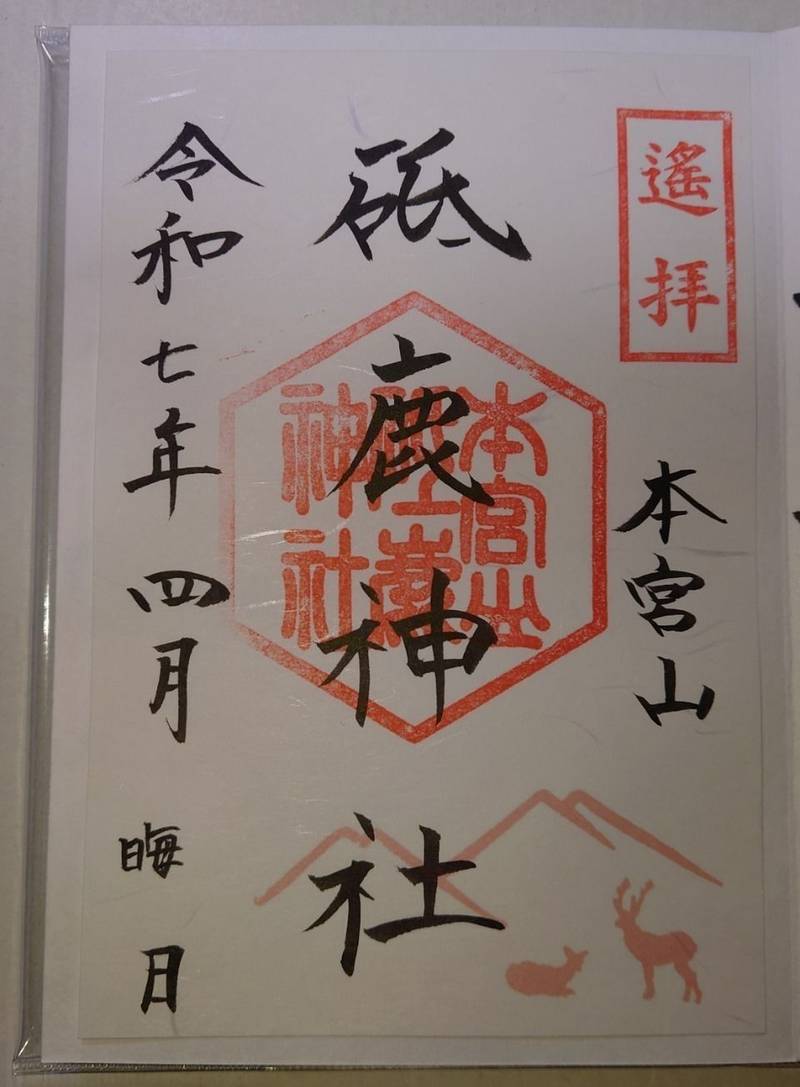 遙拝
本宮山
砥鹿神社
本宮山
神社
令和七年四月晦日